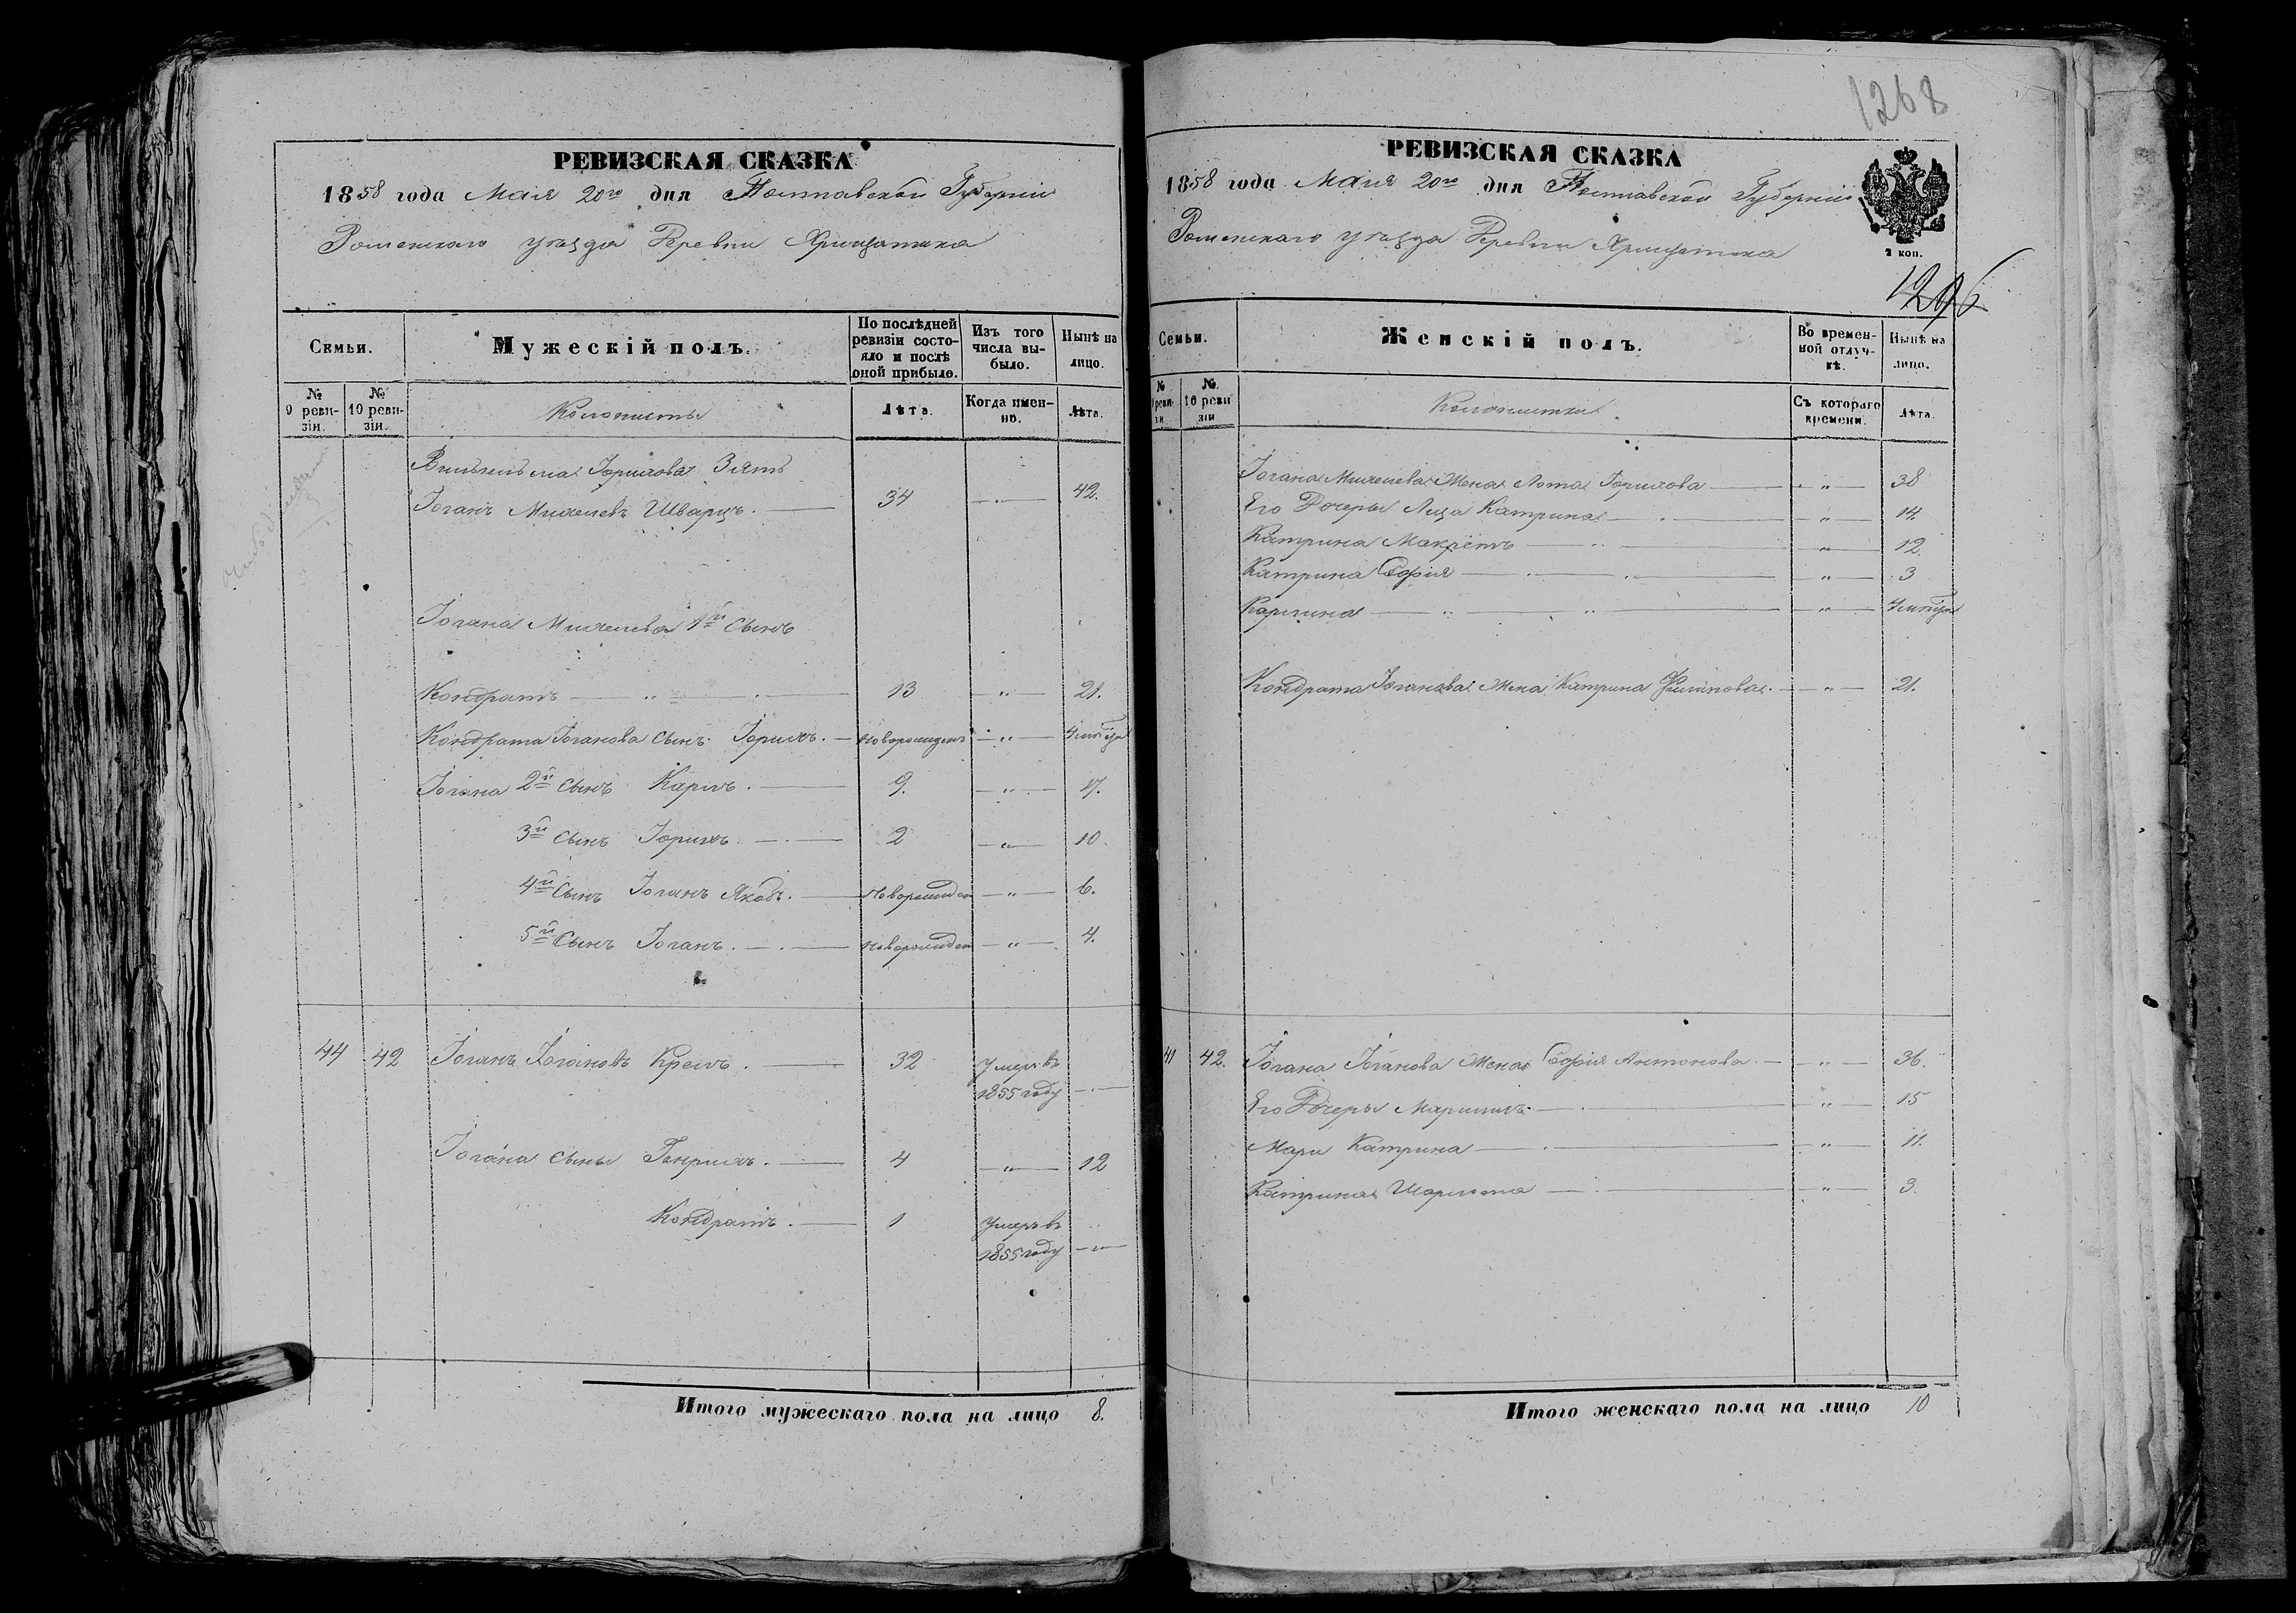 РЕВИЗСКАЯ СКАЗКА
1858 года Мая 20го дня Полтавской Губерніи
Роменскаго уѣзда Деревни Хрищатика
Семьи.
Мужескій полъ.
По послѣдней ревизіи состояло и послѣ оной прибыло.
Изъ того числа выбыло.
Нынѣ на лицо.
№ 9 ревизіи.
№ 10 ревизіи.
Колонисты
Лѣта.
Когда именно.
Лѣта.
Вильгельма Горихова Зять
Іоганъ Михелевъ Шварцъ. 34 — " — 42.
Іогана Михелева 1й Сынъ
Кондратъ 13 — " — 21.
Кондрата Іоганова Сынъ Іорихъ. новорожденъ — " —
Іогана 2й Сынъ Карлъ. 9. — " — 17.
3й Сынъ Іорихъ. 2 — " — 10.
4й Сынъ Іоганъ Якобъ. Новорожден — " — 6.
5й Сынъ Іоганъ. новорожден — " — 4.
44 42 Іоганъ Іогановъ Крель. 32 Умеръ въ
1855 году
Іогана Сыны Генрихъ. 4 — " — 12
Кондратъ. 1 Умеръ въ
1855 году — " —
Итого мужескаго пола на лицо 8.
1268
РЕВИЗСКАЯ СКАЗКА
1858 года Мая 20го дня Полтавской Губерніи
Роменскаго уѣзда Деревни Хрищатика
2 коп.
Семьи.
Женскій полъ.
Во временной отлучкѣ.
Нынѣ на лицо.
№ ревизіи
№ 10 ревизіи
Колонистки
Съ котораго времени.
Лѣта.
Іогана Михелева Жена Лота Горихова — " — 38
Его Дочеры Лиза Катрина — " — 14.
Катрина Макретъ — " — 12.
Катрина Софія — " — 3
Карлина — " —
Кондрата Іоганова Жена Катрина Филипова. — " — 21.
42. Іогана Іоганова Жена Софія Антонова — " — 36.
Его Дочеры — " — 15
Мари Катрина — " — 11.
Катрина Шарлота — " — 3.
Итого женскаго пола на лицо 10